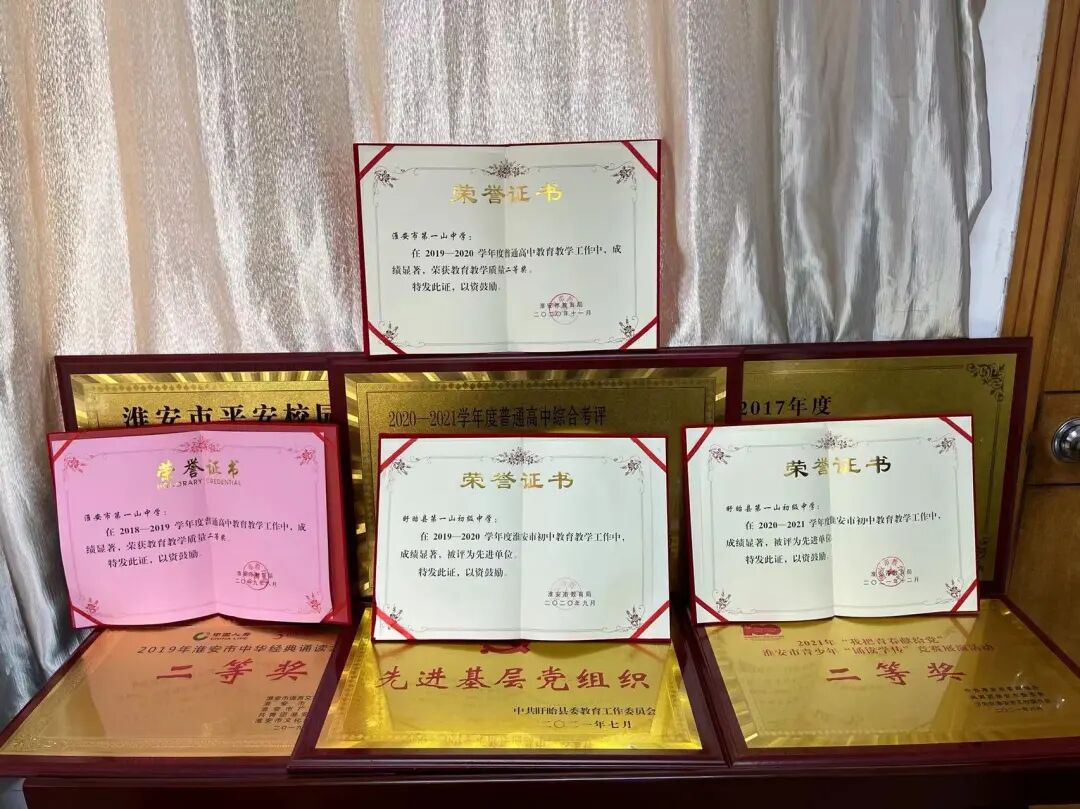 荣誉证书
淮安市第一山中学：
在 2019—2020 学年度普通高中教育教学工作中，成
绩显著，荣获教育教学质量二等奖。
特发此证，以资鼓励。
淮安市教育局
二〇二〇年十一月
淮安市平安校园
2020—2021学年度普通高中综合考评
2017年度
荣誉证书
HONORARY CREDENTIAL
淮安市第一山中学：
在 2018—2019 学年度普通高中教育教学工作中，成
绩显著，荣获教育教学质量二等奖。
特发此证，以资鼓励。
淮安市教育局
二〇一九年九月
荣誉证书
盱眙县第一山初级中学：
在 2019—2020 学年度淮安市初中教育教学工作中，
成绩显著，被评为先进单位。
特发此证，以资鼓励。
淮安市教育局
二〇二〇年九月
荣誉证书
盱眙县第一山初级中学：
在 2020—2021 学年度淮安市初中教育教学工作中，
成绩显著，被评为先进单位。
特发此证，以资鼓励。
淮安市教育局
二〇二一年十二月
中国人寿
CHINA LIFE
2019年淮安市中华经典诵读
二等奖
淮安市语言文
淮安市
淮安市广
共青团淮安
淮安市文化
二〇一九
先进基层党组织
中共盱眙县委教育工作委员会
二〇二一年七月
2021年“我把青春献给党”
淮安市青少年“诵读学传”党史展演活动
二等奖
二〇二一年六月